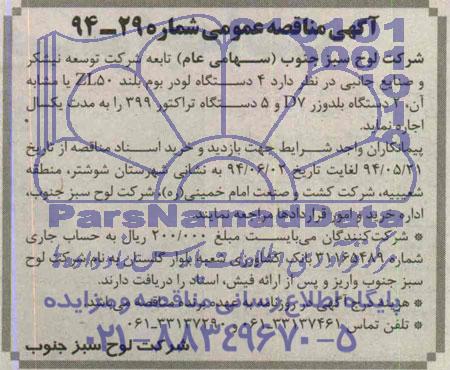 آگهی مناقصه عمومی شماره ۲۹ــ۹۴
شرکت لوح سبز جنوب (سهامی عام) تابعه شرکت توسعه نیشکر
و صنایع جانبی در نظر دارد ۴ دستگاه لودر بوم بلند ZL۵۰ یا مشابه
آن، ۲ دستگاه بلدوزر D۷ و ۵ دستگاه تراکتور ۳۹۹ را به مدت یکسال
اجاره نماید.
پیمانکاران واجد شرایط جهت بازدید و خرید اسناد مناقصه از تاریخ
۹۴/۰۵/۳۱ لغایت تاریخ ۹۴/۰۶/۰۲ به نشانی شهرستان شوشتر، منطقه
شعیبیه، شرکت کشت و صنعت امام خمینی(ره)، شرکت لوح سبز جنوب،
اداره خرید و امور قراردادها مراجعه نمایند.
ParsNamadData
* شرکت‌کنندگان می‌بایست مبلغ ۲۰۰/۰۰۰ ریال به حساب جاری
شماره ۳۱۱۶۵۴۸۹ بانک کشاورزی شعبه بلوار گلستان به نام شرکت لوح
سبز جنوب واریز و پس از ارائه فیش، اسناد را دریافت دارند.
* هزینه درج آگهی در روزنامه به عهده برنده مناقصه می‌باشد.
پایگاه اطلاع رسانی مناقصه و مزایده
* تلفن تماس: ۳۳۱۳۷۴۶۱-۰۶۱ و ۳۳۱۳۷۲۹۰-۰۶۱
۰۲۱-۸۸۳۴۹۶۷۰-۵
شرکت لوح سبز جنوب